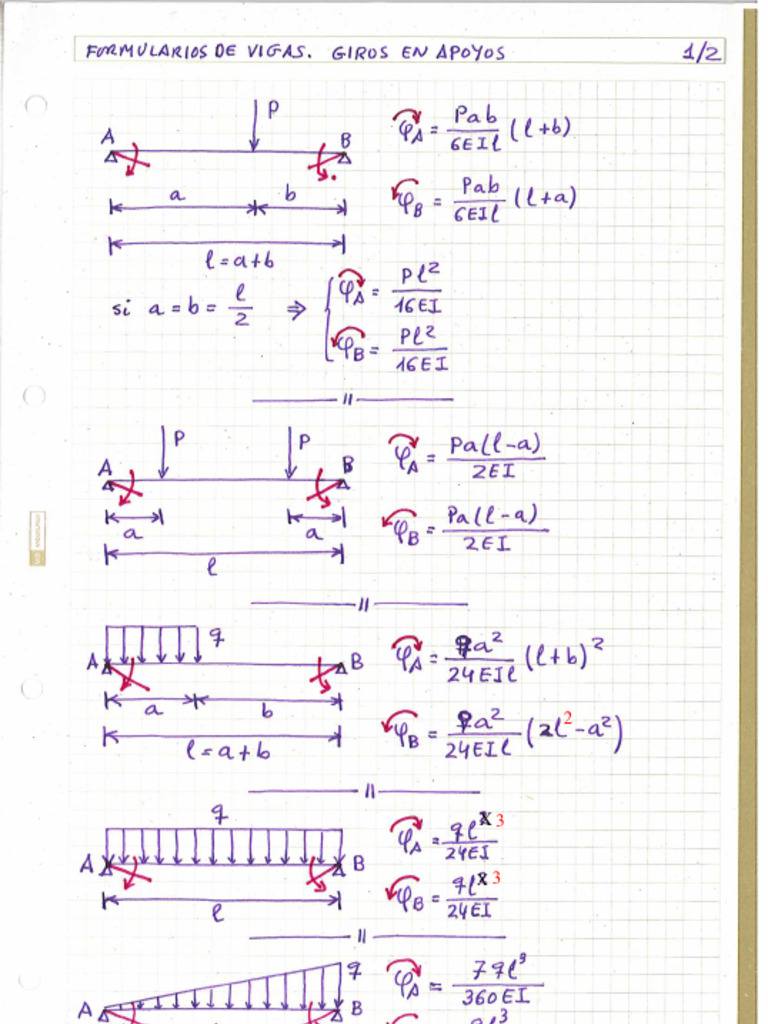 FORMULARIOS DE VIGAS. GIROS EN APOYOS 1/2
P
A B
a b
l = a+b
φA = Pab/6EIl (l+b)
φB = Pab/6EIl (l+a)
si a = b = l/2 ⇒ { φA = Pl²/16EI
φB = Pl²/16EI
P P
A B
a a
l
φA = Pa(l-a)/2EI
φB = Pa(l-a)/2EI
q
A B
a b
l = a+b
φA = qa²/24EIl (l+b)²
φB = qa²/24EIl (2l²-a²)
q
A B
l
φA = ql3/24EI
φB = ql3/24EI
q
A B
φA = 7ql³/360EI